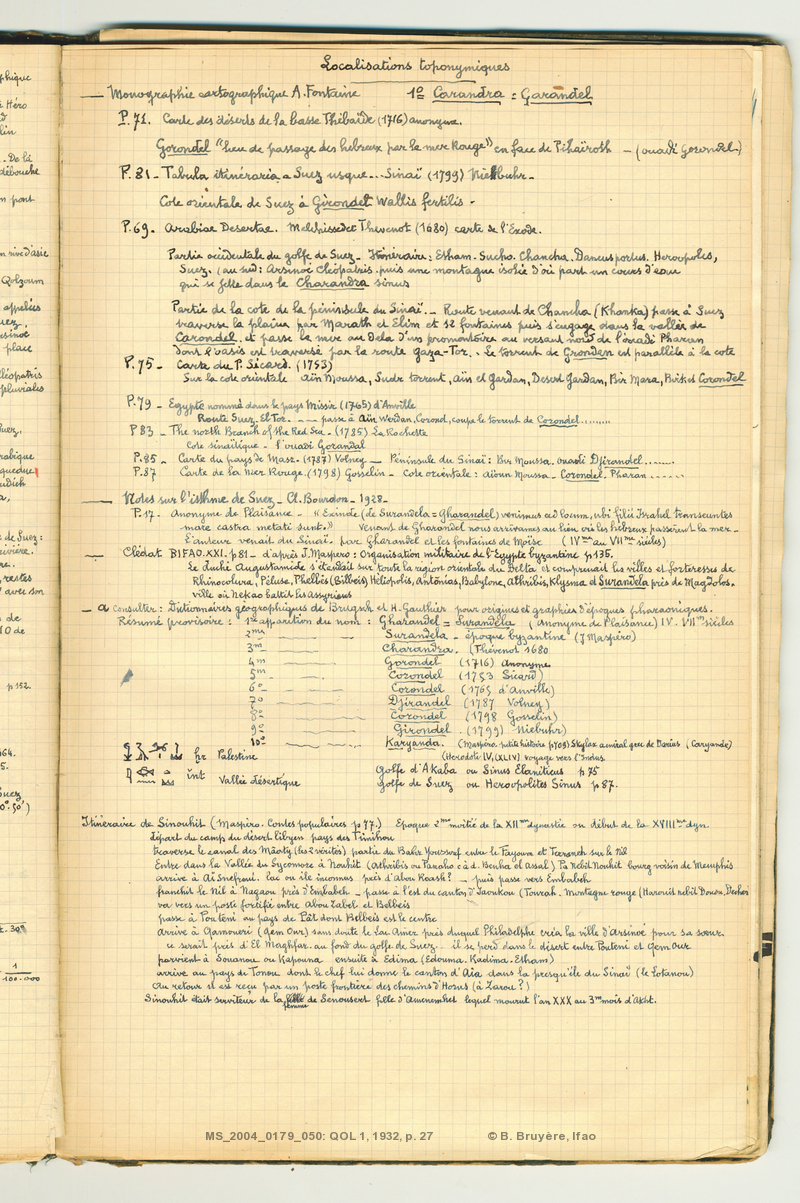 Localisations toponymiques
— Monographie cartographique A. Fontaine 1º Carandra = Garandel
P. 71. Carte des déserts de la basse Thébaïde (1716) anonyme.
Gorondel "lieu de passage des hebreux par la mer Rouge" en face de Pihaïroth — (ouadi Gorondel)
P. 81 - Tabula itinéraria a Suez usque... Sinaï (1799) Niebuhr -
Cote orientale de Suez à Girondel Wallis fertilis -
P. 69 - Arabiae Desertae. Melchissedec Thevenot (1680) carte de l'Exode.
Partie occidentale du golfe de Suez - Itinéraire : Etham. Sucho. Chancha. Daneus portus. Heroopolis,
Suez. (au sud: Arsinoe Cléopatris. puis une montagne isolée d'où part un cours d'eau
qui se jette dans le Charandra sinus
Partie de la cote de la péninsule du Sinaï. - Route venant de Chancha (Khanka) passe à Suez
traverse la plaine par Marath et Elim et 12 fontaines puis s'engage dans la vallée de
Corondel, et passe la mer au delà d'un promontoire au versant nord de l'ouadi Pharan
dont l'oasis est traversé par la route Gaza-Tor. - Le torrent de Gronden est parallèle à la cote
P. 75 - Carte du P. Sicard. (1753)
Sur la cote orientale aïn Moussa, Sudr torrent, aïn el Gardan, Desert Gardan, Bir Mara, Birket Corondel
P. 79 - Egypte nommé dans le pays Missir (1765) d'Anville
Route Suez, El Tor. - — passe à aïn Werdan, Corond, coupe le torrent de Corondel.........
P 83 - The north Branch of the Red Sea - (1785) La Rochette
Cote sinaïtique - l'ouadi Gorandal
P. 85 - Carte du pays de Masr. (1787) Volney — Péninsule du Sinaï : Bir Moussa. ouadi Djirandel........
P. 87 Carte de la Mer Rouge. (1798) Gosselin - Cote orientale : aïoun Moussa - Corondel. Pharan ......
— Notes sur l'isthme de Suez - Cl. Bourdon - 1928 -
P. 17. Anonyme de Plaisance - « Exinde (de Surandela = Gharandel) venimus ad locum, ubi filii Israhel transeuntes
mare castra metati sunt.» Venant de Gharandel nous arrivames au lieu où les hébreux passèrent la mer -
L'auteur venait du Sinaï. par Gharandel et les fontaines de Moïse (IVme au VIIme siècles)
— Clédat BIFAO. XXI. p 81 - d'après J. Maspero : Organisation militaire de l'Egypte byzantine p 135.
Le duché Augustamide s'étendait sur toute la région orientale du Delta et comprenait les villes et forteresses de
Rhinocolura, Péluse, Phelbis (Bilbeis) Héliopolis, Antonias, Babylone, Athribis, Klysma et Surandela près de Magdolos.
ville où Nekao battit les assyriens
— a consulter : Dictionnaires géographiques de Brugsch et H. Gauthier pour origines et graphies d'époques pharaoniques.
Résumé provisoire : 1ere apparition du nom : Gharandel = Surandela (Anonyme de Plaisance) IV - VIIme siècles
2me — — Surandela - époque byzantine (J Maspéro)
3me — — Charandra. (Thévenot 1680
4me — — Gorondel (1716) Anonyme
5me — — Corondel (1753 Sicard)
6º — — Corondel (1765 d'Anville)
7º — — Djirandel (1787 Volney)
8º — — Corondel (1798 Gosselin)
9º — — Girondel (1799) Niebuhr)
10º — — Karyanda. (Maspéro. petite histoire p 709) Skylax amiral grec de Darius (Caryande)
(Hérodote IV, (XLIV) voyage vers l'Indus
hr Palestine
int Vallée désertique
Golfe d'Akaba ou Sinus Elaniticus p 75
Golfe de Suez ou Heroopolites Sinus p 87.
Itinéraire de Sinouhit (Maspéro. Contes populaires p 77.) Epoque 2me moitié de la XIIme dynastie ou début de la XVIIIme dyn.
départ du camp du désert libyen pays des Timihou
traverse le canal des Mâaty (les 2 vérités) partie du Bahr Youssouf entre le Fayoum et Terraneh sur le Nil
Entre dans la Vallée du Sycomore à Nouhit (Athribis ou Pa à cd. Benha el Assal) Pa nebit Nouhit bourg voisin de Memphis
arrive à Aï Snefroui. lac ou ile inconnus près d'Abou Roash? — puis passe vers Embabeh
franchit le Nil à Nagaou près d'Embabeh — passe à l'est du canton d'Iaoukou (Tourah. Montagne rouge (Harouit nebit Douou
va vers un poste fortifié entre Abou Zabel et Belbeis
passe à Pouteni au pays de Pât dont Belbeis est le centre
arrive à Qamouiri (Qem Our) sans doute le Lac Amer près duquel Philadelphe créa la ville d'Arsinoé pour sa sœur.
ce serait près d'El Maghfar. au fond du golfe de Suez. il se perd dans le désert entre Pouteni et Qem our
parvient à Souanou ou Kapouna ensuite à Edima (Edouma. Kadima. Etham)
arrive au pays de Tonou dont le chef lui donne le canton d'Aia dans la presqu'île du Sinaï (le Lotanou)
Au retour il est reçu par un poste frontière des chemins d'Horus (à Zarou?)
Sinouhit était serviteur de la femme de Senousert fille d'Amenemhet lequel mourut l'an XXX au 3me mois d'Akhit.
MS_2004_0179_050: QOL 1, 1932, p. 27 © B. Bruyère, Ifao